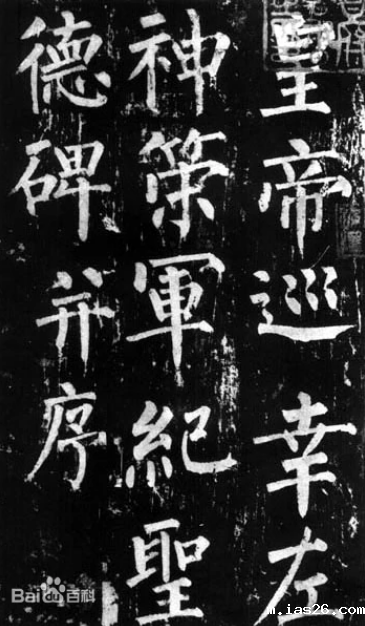 皇帝巡幸左
神策軍紀聖
德碑并序
Bai百科
m.ias26.com